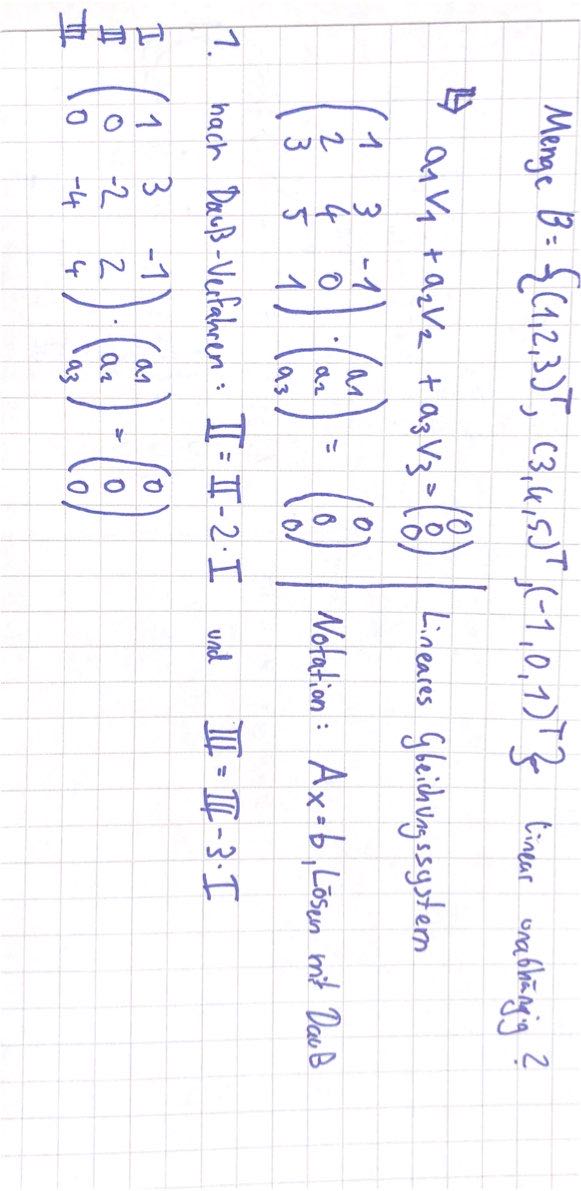 Menge B = {(1,2,3)ᵀ, (3,4,5)ᵀ, (-1,0,1)ᵀ} linear unabhängig ?
↳ a₁v₁ + a₂v₂ + a₃v₃ = (0 0 0) | Lineares Gleichungssystem
(1 3 -1; 2 4 0; 3 5 1) · (a₁ a₂ a₃) = (0 0 0) | Notation: Ax=b, Lösen mit Dauß
1. nach Dauß-Verfahren: II = II - 2·I und III = III - 3·I
I (1 3 -1) (a₁) (0)
II (0 -2 2) · (a₂) = (0)
III (0 -4 4) (a₃) (0)